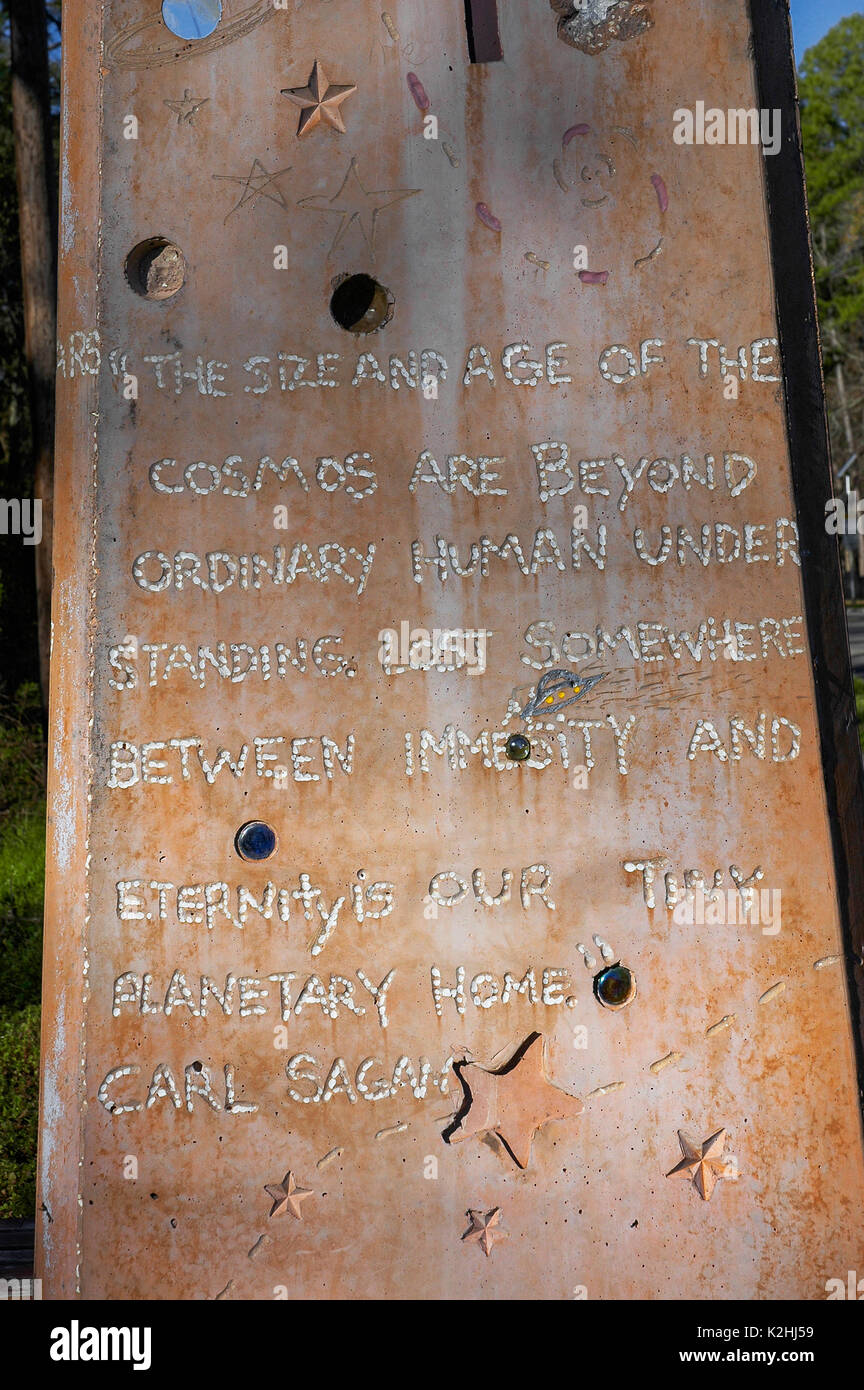 "THE SIZE AND AGE OF THE
COSMOS ARE BEYOND
ORDINARY HUMAN UNDER
STANDING. LOST SOMEWHERE
BETWEEN IMMENSITY AND
ETERNITY IS OUR TINY
PLANETARY HOME."
CARL SAGAN
alamy stock photo
K2HJ59
www.alamy.com